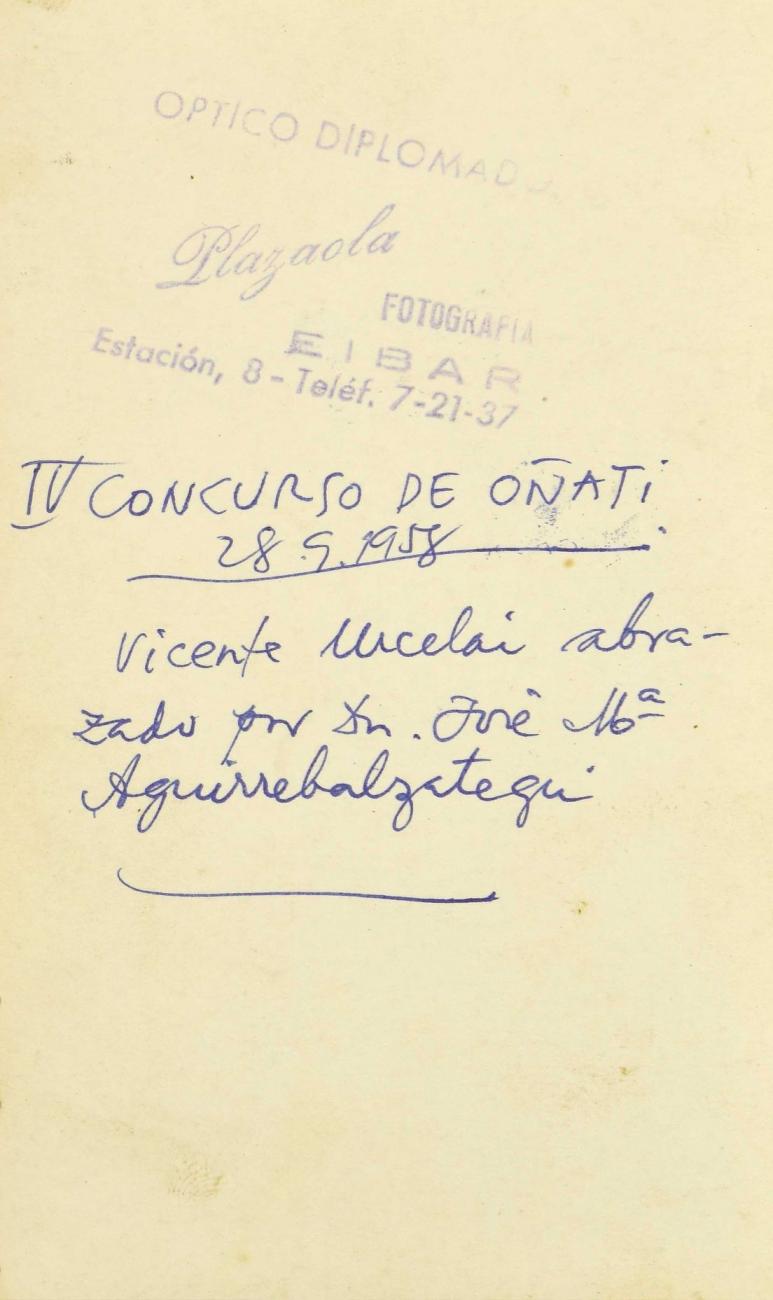 OPTICO DIPLOMADO
Plazaola
FOTOGRAFIA
EIBAR
Estación, 8 - Teléf. 7-21-37
IV CONCURSO DE OÑATI
28.9.1958
Vicente Urcelai abra-
zado por Dn. José Mª
Aguirrebalzategui